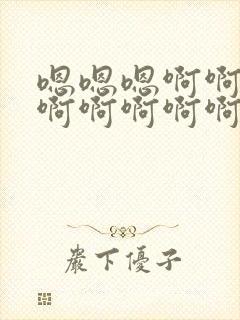 嗯嗯嗯啊啊
啊啊啊啊啊
巖下優子